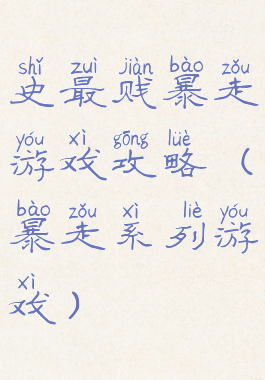 shǐ zuì jiàn bào zǒu
史最贱暴走
yóu xì gōng lüè
游戏攻略（
bào zǒu xì liè yóu
暴走系列游
xì
戏）